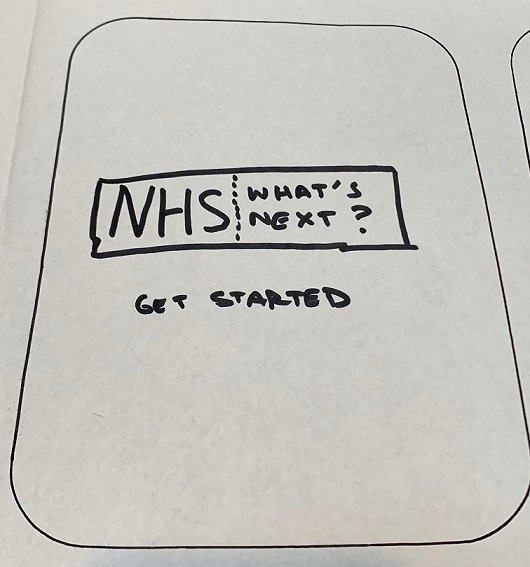 NHS WHAT'S
NEXT?
GET STARTED